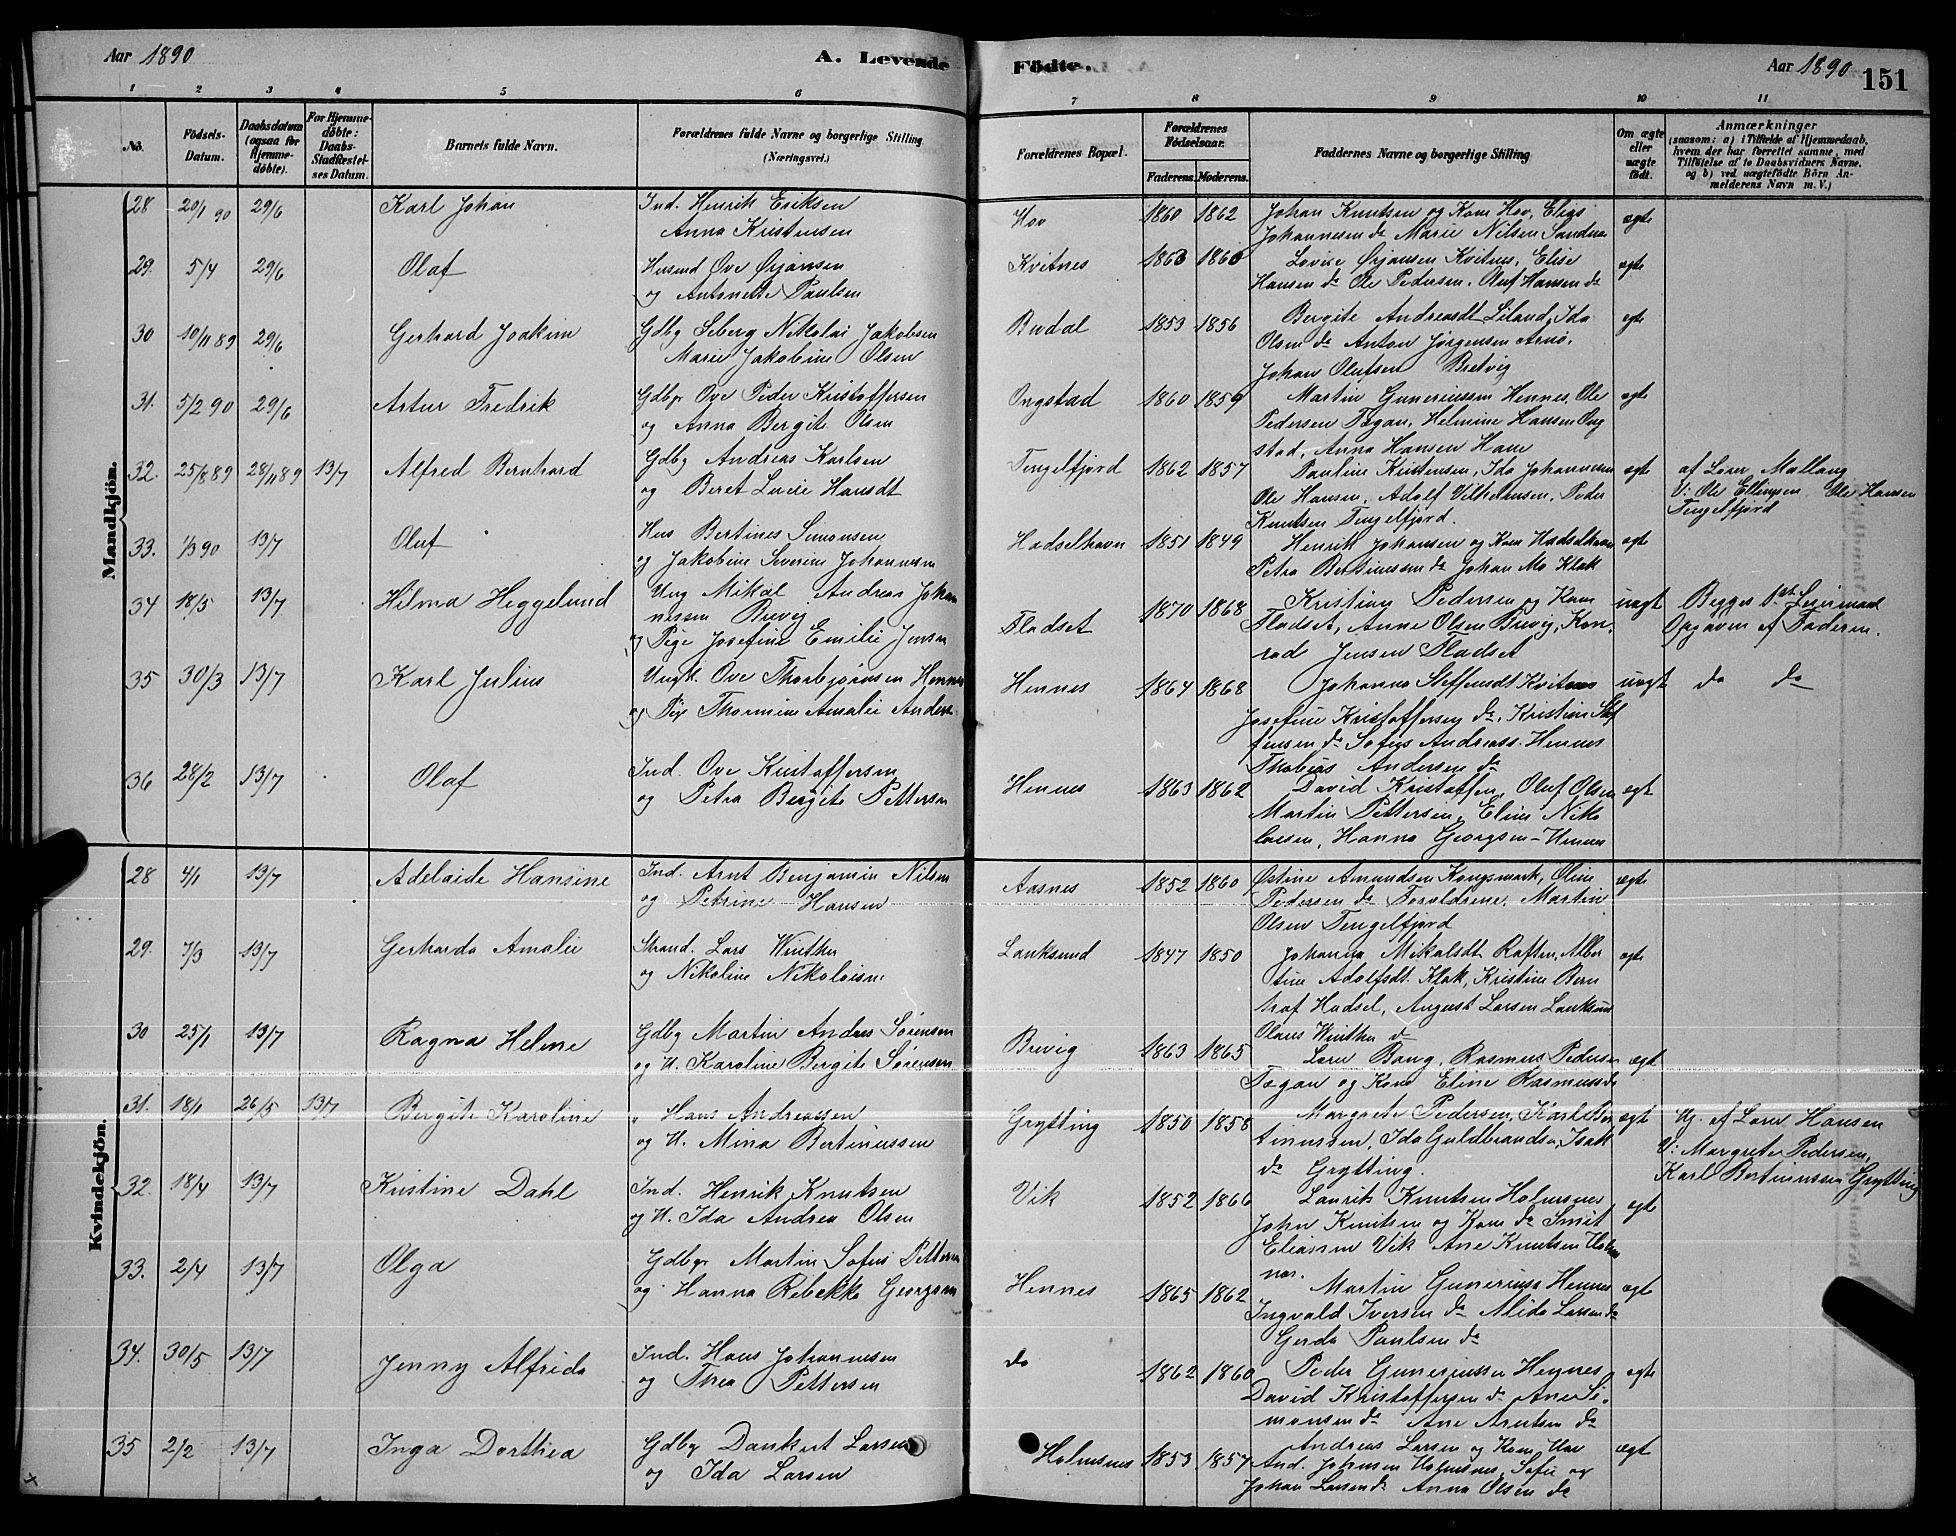 Aar 1890
A. Levende Födte.
Aar 1890
151
1 2 3 4 5 6 7 8 9 10 11
No.
Födsels-Datum.
Daabsdatum (ogsaa for Hjemme-döbte).
For Hjemme-döbte: Daabs-Stadfæstel-ses Datum.
Barnets fulde Navn.
Forældrenes fulde Navne og borgerlige Stilling (Næringsvei.)
Forældrenes Bopæl.
Forældrenes Födselsaar.
Faderens. Moderens.
Faddernes Navne og borgerlige Stilling
Om ægte eller uægte födt.
Anmærkninger
(saasom: a) i Tilfælde af Hjemmedaab, hvem der har forrettet samme, med Tilföielse af to Daabsvidners Navne. og b) ved uægtefödte Börn An-melderens Navn m. V.)
Mandkjön.
28 20/1 90 29/6 Karl Johan Ind. Henrik Eriksen
Anna Kristensen
Hov 1860 1862 Johan Knutsen og Kone Hov, Elias
Johannesen do Marie Nilsen ægte
29. 5/4 29/6 Olaf Husmd Ove Örjansen
og Antonette Paulsen
Kvitnes 1863 1860 Lovise Örjansen Kvitnes, Elise
Hansen do Ole Pedersen, Oluf Hansen do ægte
30 10/11 89 29/6 Gerhard Joakim Gdbg Seberg Nikolai Jakobsen
Marie Jakobine Olsen
Budal 1853 1856 Bergite Andreasdt Liland, Ida
Olsen do Anton Jørgensen Arnö,
Johan Olufsen Bretvig ægte
31. 5/2 90 29/6 Artur Fredrik Gdbgr Ove Peder Kristoffersen
og Anna Bergite Olsen
Ongstad 1860 1859 Martin Guneriussen Hennes, Ole
Pedersen Tøgan, Helmine Hansen Ong
stad, Anna Hansen Ham ægte
32. 25/8 89 28/11 89 13/7 Alfred Bernhard Gdbg Andreas Karlsen
og Beret Lucie Hansdt
Tengelfjord 1862 1857 Pauline Kristensen, Ida Johannesen
Ole Hansen, Adolf Vilhelmsen, Peder
Knutsen Tengelfjord. ægte
af Lærer Mallang
V: Ole Ellingsen Ole Hansen
Tengelfjord
33. 1/3 90 13/7 Oluf Hus Bertines Simonsen
og Jakobine Severine Johannesen
Hadselhavn 1851 1849 Henrik Johansen og Kone Hadselhavn
Petra Bertinussen do Johan Mo Klak ægte
34 18/5 13/7 Hilma Heggelund Ung Mikal Andreas Johan
nessen Brevig
og Pige Josefine Emilie Jensen
Fladset 1870 1868 Kristine Pedersen og Kone
Fladset, Anne Olsen Brevig, Kon
rad Jensen Fladset uægt
Begges 1ste Leiermaal
Opgaven af Faderen.
35 30/3 13/7 Karl Julius Ungk. Ove Thorbjørnsen Hennes
og Pig Thormine Amalie Anders
Hennes 1864 1868 Johanna Steffensdt Kvitnes
Josefine Kristoffersen do, Kristine Stef
fensen do Sofus Andreass. Hennes
Thobias Andersen do uægt do do
36 28/2 13/7 Olaf Ind. Ove Kristoffersen
og Petra Bergite Pettersen
Hennes 1863 1862 David Kristoffers, Oluf Olsen
Martin Pettersen, Eline Niko
laisen, Hanna Georgsen - Hennes ægt
Kvindekjön.
28 4/1 13/7 Adelaide Hansine Ind. Arnt Benjamin Nilsen
og Petrine Hansen
Aasnes 1852 1860 Östine Amundsen Kongsmark, Oline
Pedersen do Forældrene, Martin
Olsen Tengelfjord ægte
29. 7/3 13/7 Gerharda Amalie Strand. Lars Winther
og Nikoline Nikolaisen
Lauksund 1847 1850 Johanna Mikalsdt Raften, Alber
tine Adolfsdt. Klak, Kristine Bern
Hadsel, August Larsen Lauksund
Olaus Winther do ægt
30 25/1 13/7 Ragna Helene Gdbg Martin Andreas Sörensen
og H. Karoline Bergite Sörensen
Brevig 1863 1865 Lærer Bang, Rasmus Pedersen
Tøgan og Kone Eline Rasmussen do ægt
31. 18/1 26/5 13/7 Bergite Karoline " Hans Andreassen
og H. Mina Bertinussen
Grytting 1850 1858 Margrete Pedersen, Karl Ber
tinussen, Ida Guldbrandsen, Isak
do Grytting. ægt
Hj. af Lærer Hansen
V: Margrete Pedersen,
Karl Bertinussen Grytting
32. 18/4 13/7 Kristine Dahl Ind. Henrik Knutsen
og H. Ida Andrea Olsen
Vik 1852 1866 Laurits Knutsen Holmsnes
John Knutsen og Kone do Smit
Eliassen Vik Ane Knutsen Holms
nes. ægt
33. 2/4 13/7 Olga Gdbgr Martin Sofus Pettersen
og Hanna Rebekka Georgsen
Hennes 1865 1862 Martin Guneriuss Hennes
Ingvald Iversen do Alida Larsen do
Gerda Paulsen do ægt
34. 30/5 13/7 Jenny Alfrida Ind. Hans Johannesen
og Thea Pettersen
do 1862 1860 Peder Guneriussen Hennes,
David Kristoffersen do Ane Si
monsen do Ane Arntsen do ægt
35 2/2 13/7 Inga Dorthea Gdbg Dankert Larsen
og Ida Larsen
Holmsnes 1853 1857 Andreas Larsen og Kone
And. Johnsen Holmsnes, Sofie og
Johan Larsen do Anna Olsen do ægt